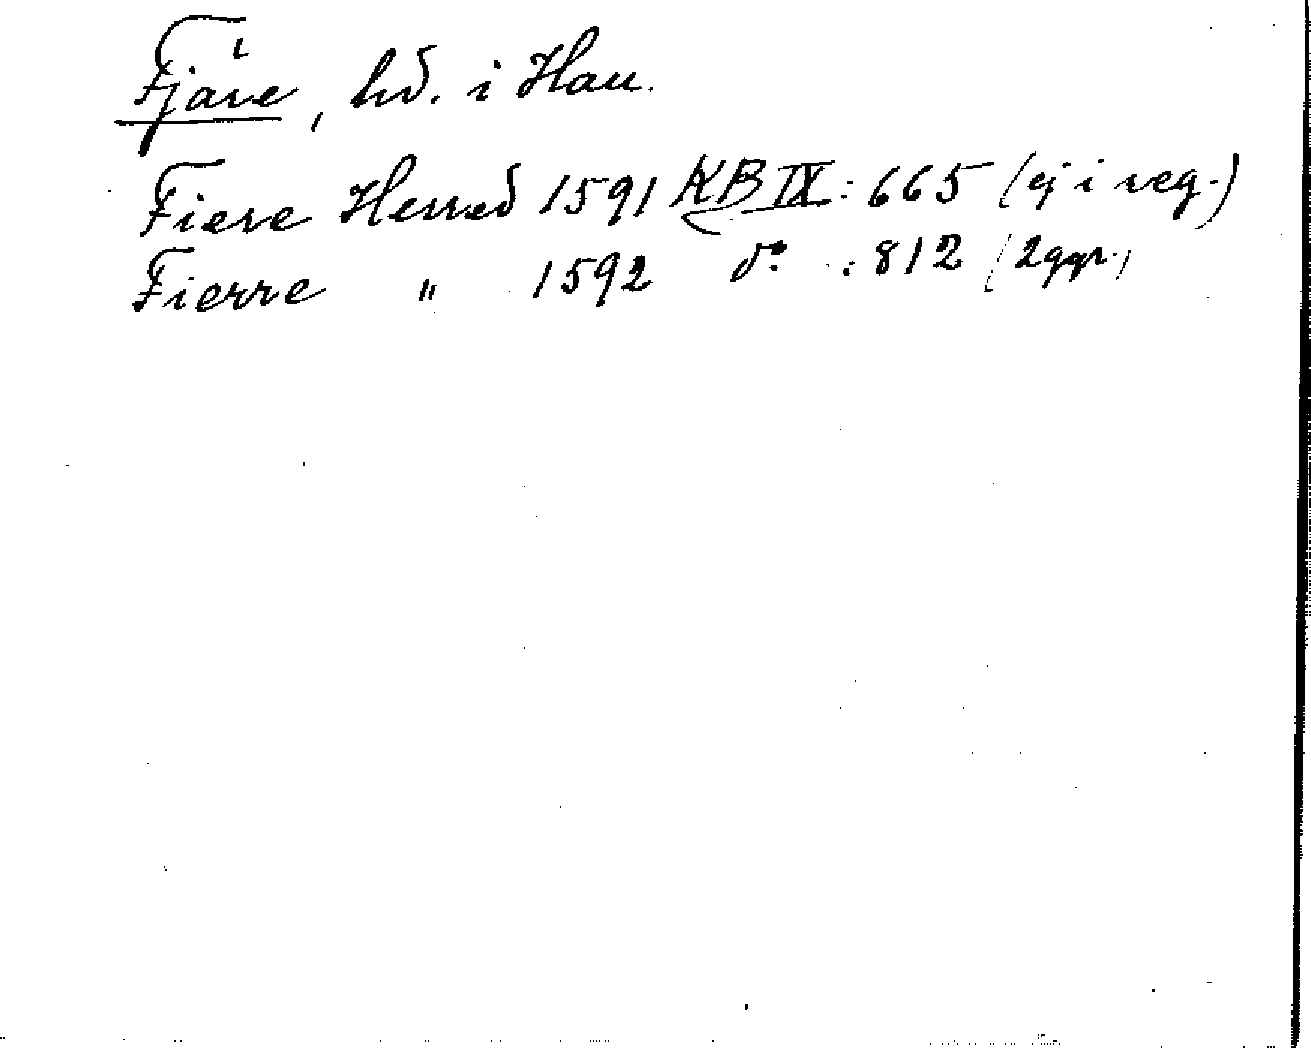 Fjäre, hd. i Hall.
Fiere Herred 1591 KB IX: 665 (ej i reg.)
Fierre " 1592 do : 812 (2 ggr.)